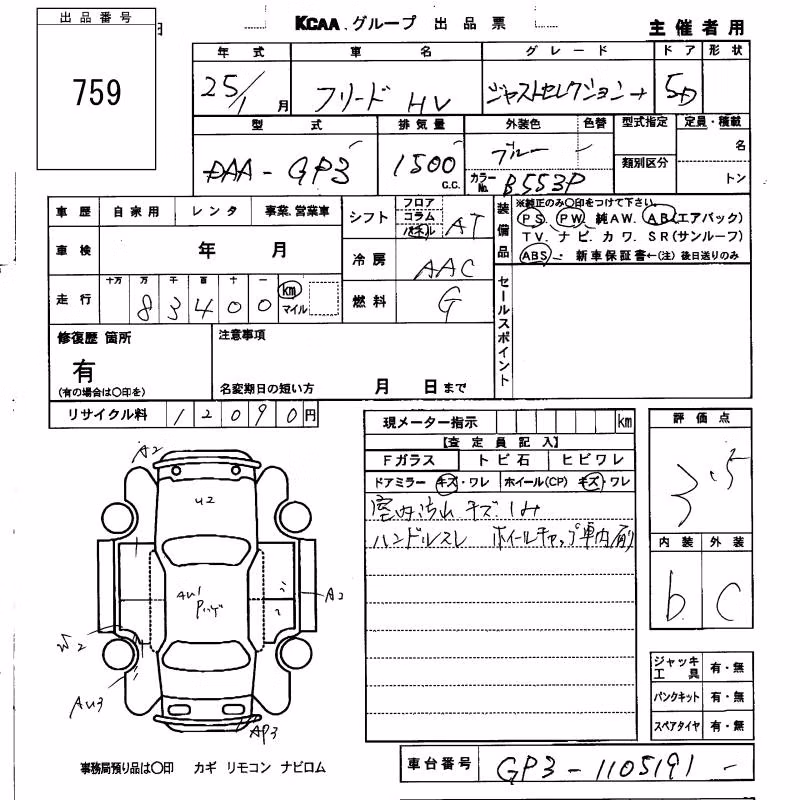 出品番号
759
KCAA.グループ 出品票
主催者用
年式 車名 グレード ドア 形状
25/1 月 フリード HV ジャストセレクション+ 5D
型式 排気量 外装色 色替 型式指定 定員・積載
DAA-GP3 1500 C.C. ブルー 名
類別区分
カラーNo. B553P トン
車歴 自家用 レンタ 事業.営業車
シフト フロア コラム パネル AT
装備品
※純正のみ○印をつけて下さい。
PS. PW. 純AW. AB(エアバック)
TV. ナビ. カワ. SR(サンルーフ)
ABS 新車保証書←(注)後日送りのみ
車検 年 月
冷房 AAC
走行 十万 万 千 百 十 一
83400 km マイル
燃料 G
セールスポイント
修復歴 箇所
有
(有の場合は○印を)
注意事項
名変期日の短い方 月 日まで
リサイクル料 12090円
現メーター指示 km
【査定員記入】
Fガラス トビ石 ヒビワレ
ドアミラー キズ・ワレ ホイール(CP) キズ・ワレ
室内汚れ キズ.シミ
ハンドルスレ ホイールキャップ車内
評価点
3.5
内装 外装
b C
A2
U2
AU1
A2
W2
AU3
AP3
ジャッキ工具 有・無
パンクキット 有・無
スペアタイヤ 有・無
事務局預り品は○印 カギ リモコン ナビロム
車台番号 GP3-1105191